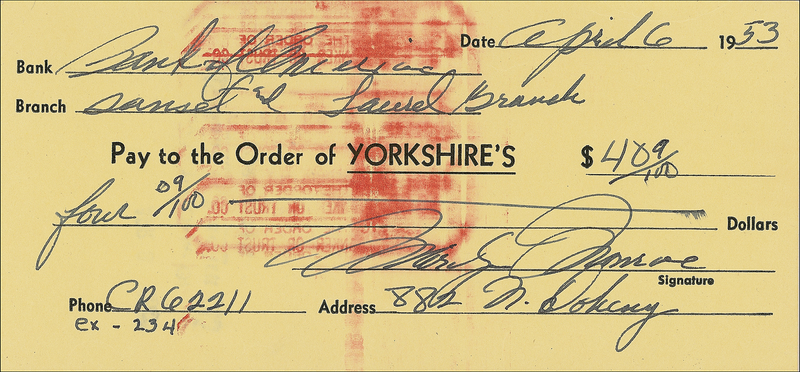 Date April 6 1953
Bank Bank of America
Branch Sunset and Laurel Branch
Pay to the Order of YORKSHIRE'S $ 4 09/100
four 09/100 Dollars
Marilyn Monroe
Signature
Phone CR62211 Address 882 N. Doheny
ex - 234